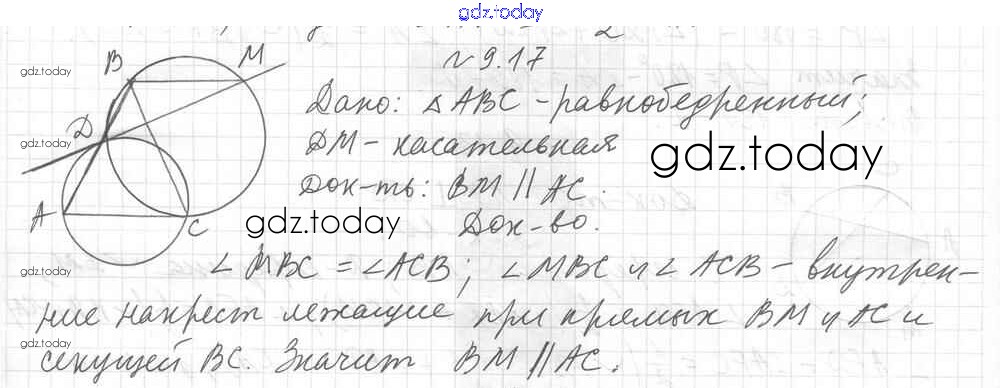 gdz.today
№ 9.17
B M
gdz.today
Дано: △ABC - равнобедренный;
D
gdz.today
DM - касательная
gdz.today
Док-ть: BM || AC.
A C
gdz.today
Док-во.
gdz.today
∠MBC = ∠ACB; ∠MBC и ∠ACB - внутрен-
ние накрест лежащие при прямых BM и AC и
gdz.today
секущей BC. Значит BM || AC.